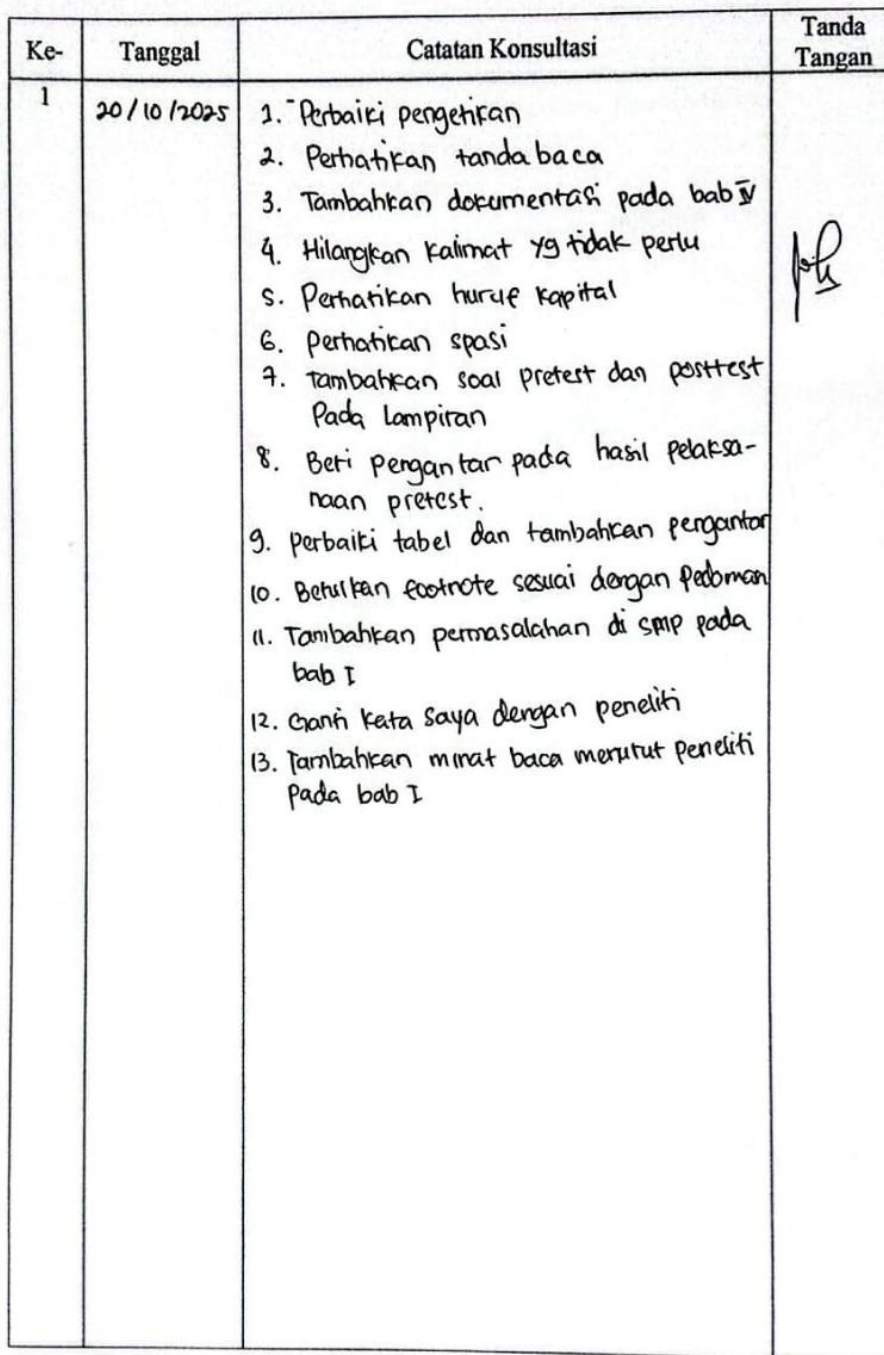 Ke-
Tanggal
Catatan Konsultasi
Tanda
Tangan
1
20/10/2025
1. Perbaiki pengetikan
2. Perhatikan tanda baca
3. Tambahkan dokumentasi pada bab IV
4. Hilangkan kalimat yg tidak perlu
5. Perhatikan huruf kapital
6. Perhatikan spasi
7. Tambahkan soal pretest dan posttest
Pada Lampiran
8. Beri pengantar pada hasil pelaksa-
naan pretest.
9. perbaiki tabel dan tambahkan pengantar
10. Betulkan footnote sesuai dengan Pedoman
11. Tambahkan permasalahan di SMP pada
bab I
12. Ganti kata saya dengan peneliti
13. Tambahkan minat baca merutut peneliti
Pada bab I